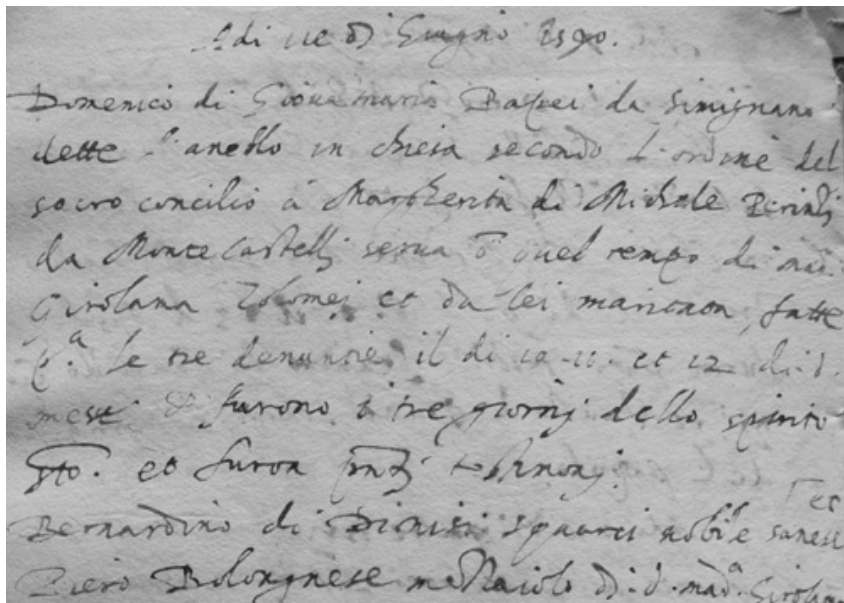 Adi di Giugno 1590.
Domenico di Giova maria da Simignano
dette l'anello in chiesa secondo l'ordine del
sacro concilio à Margherita di Michele
da Monte Castelli serua quel tempo di mad.
Girolama Tolomei et da lei maritata, fatte
p.a le tre denuntie il di 10 - 11. et 12 di d.
mese furono i tre giorni dello spirito
sto. et furon
Bernardino di Dionisi nobile sanese et
Piero Bolongnese di d. mad.a Girolama